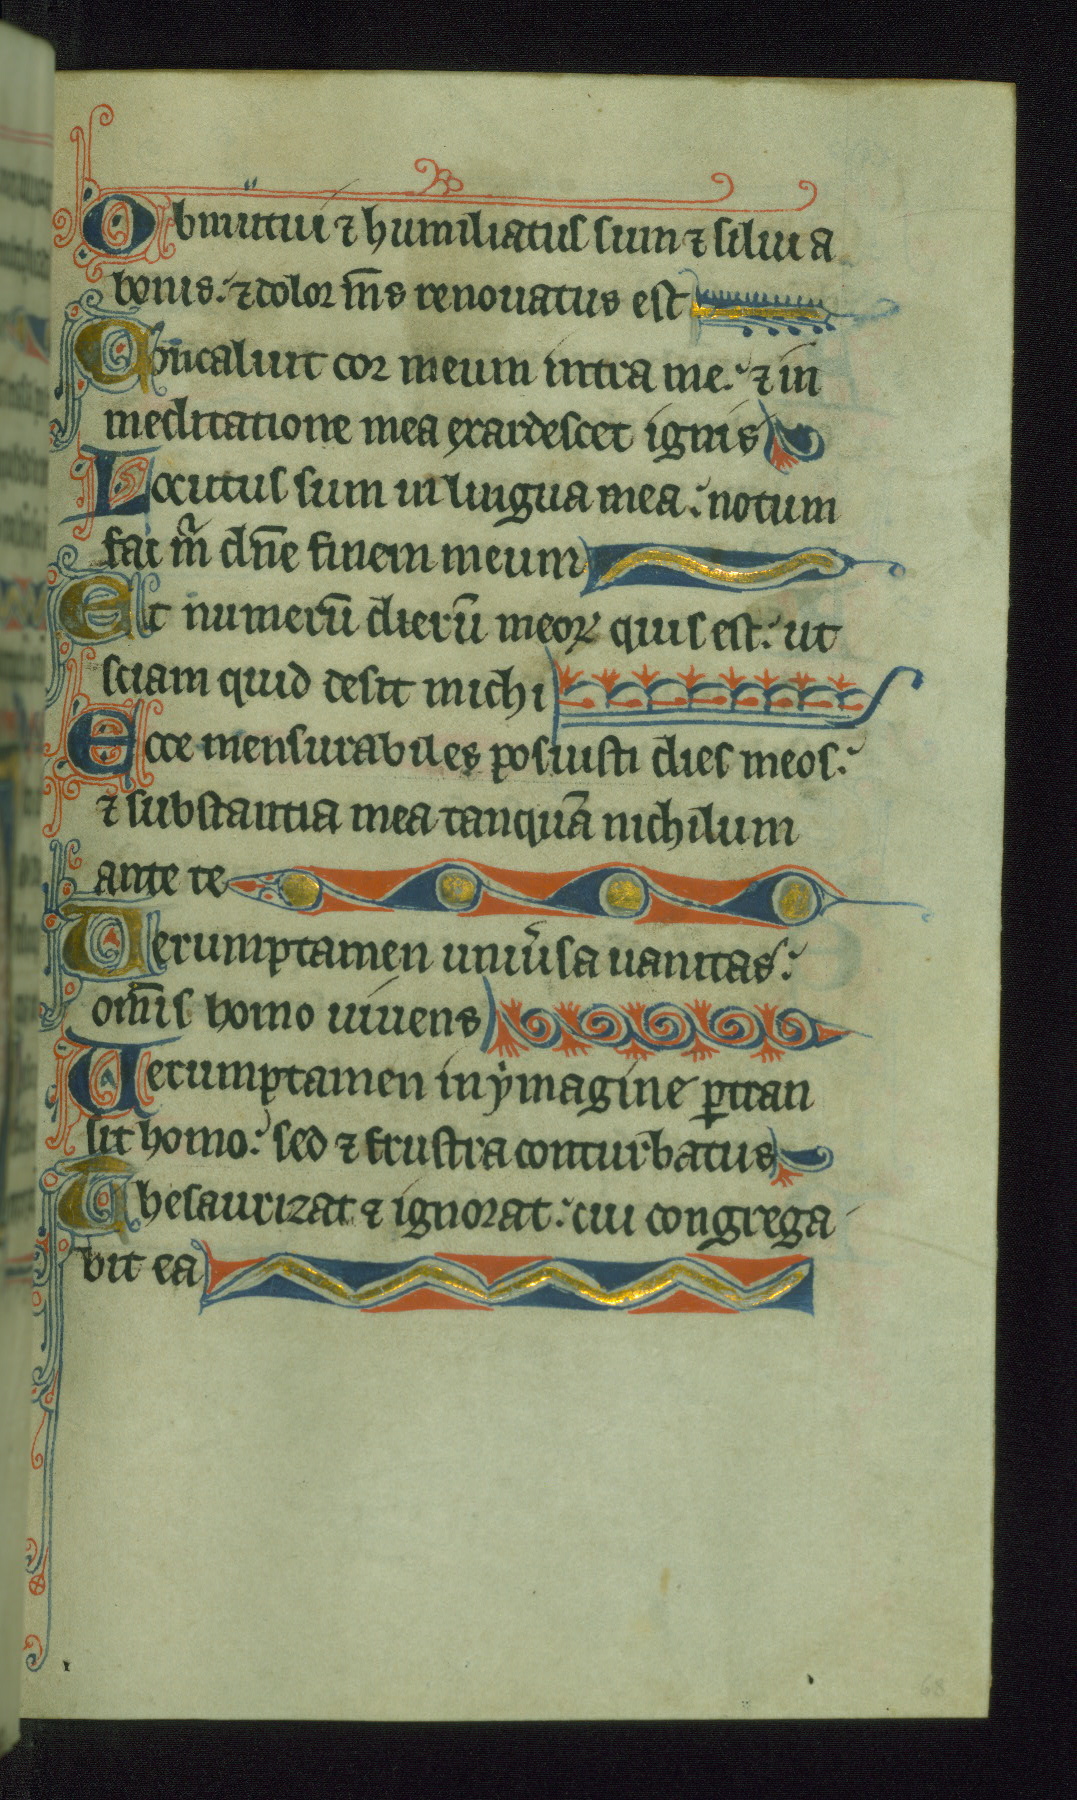 Obmutui ⁊ humiliatus sum ⁊ silui a
bonis: ⁊ dolor m̅s renouatus est
Concaluit cor meum intra me: ⁊ in
meditatione mea exardescet ignis
Locutus sum in lingua mea: notum
fac m̅ dn̅e finem meum
Et numeru̅ dieru̅ meoꝝ quis est: ut
sciam quid desit michi
Ecce mensurabiles posuisti dies meos:
⁊ substantia mea tanqua̅ nichilum
ante te
Uerumptamen uniu̅sa uanitas:
om̅is homo uiuens
Uerumptamen in ymagine ꝑtran
sit homo: sed ⁊ frustra conturbatus
Thesaurizat ⁊ ignorat: cui congrega
bit ea
68